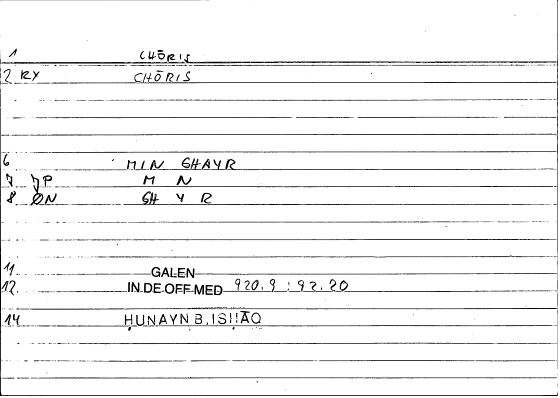 1 CHŌRIS
2 RY CHŌRIS
6 MIN GHAYR
7 JP M N
8 ØN GH Y R
11 GALEN
12 IN DE OFF MED 920.9 : 92.20
14 ḤUNAYN B. ISḤĀQ